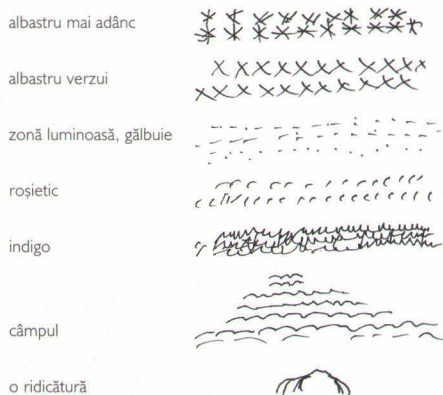 albastru mai adânc
albastru verzui
zonă luminoasă, gălbuie
roșietic
indigo
câmpul
o ridicătură